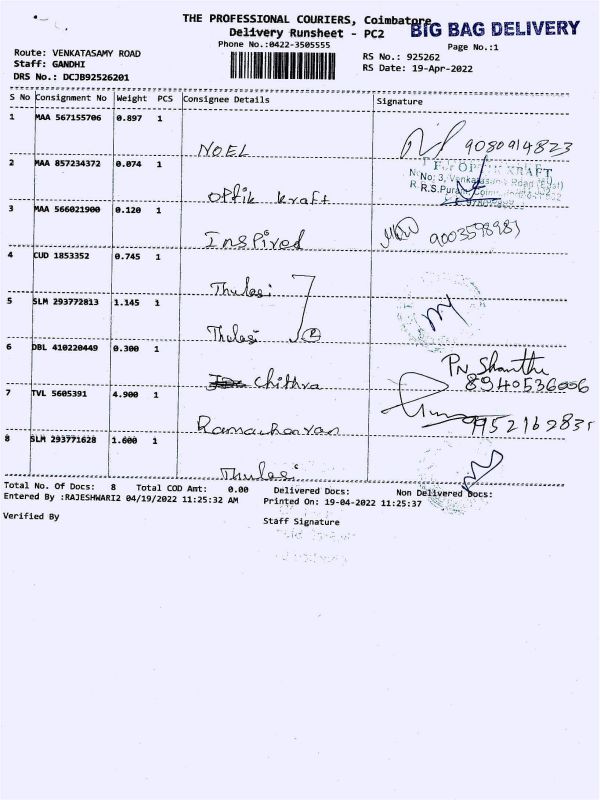 THE PROFESSIONAL COURIERS, Coimbatore
BIG BAG DELIVERY
Delivery Runsheet - PC2
Phone No.:0422-3505555
Page No.:1
Route: VENKATASAMY ROAD
Staff: GANDHI
DRS No.: DCJB92526201
RS No.: 925262
RS Date: 19-Apr-2022
S No Consignment No Weight PCS Consignee Details Signature
1 MAA 567155706 0.897 1
NOEL 9080914823
2 MAA 857234372 0.074 1
OPTIK KRAFT
No: 3, Venkatasamy Road (East)
R.R.S.Puram
Optik Kraft
3 MAA 566021900 0.120 1
Inspired 9003598981
4 CUD 1853352 0.745 1
Thulasi
5 SLM 293772813 1.145 1
Thulasi 2
6 DBL 410220449 0.300 1
PN Shanthi
Chithra 8940536006
7 TVL 5605391 4.900 1
9952162835
8 SLM 293771628 1.600 1
Thulasi
Total No. Of Docs: 8 Total COD Amt: 0.00 Delivered Docs: Non Delivered Docs:
Entered By :RAJESHWARI2 04/19/2022 11:25:32 AM Printed On: 19-04-2022 11:25:37
Verified By
Staff Signature